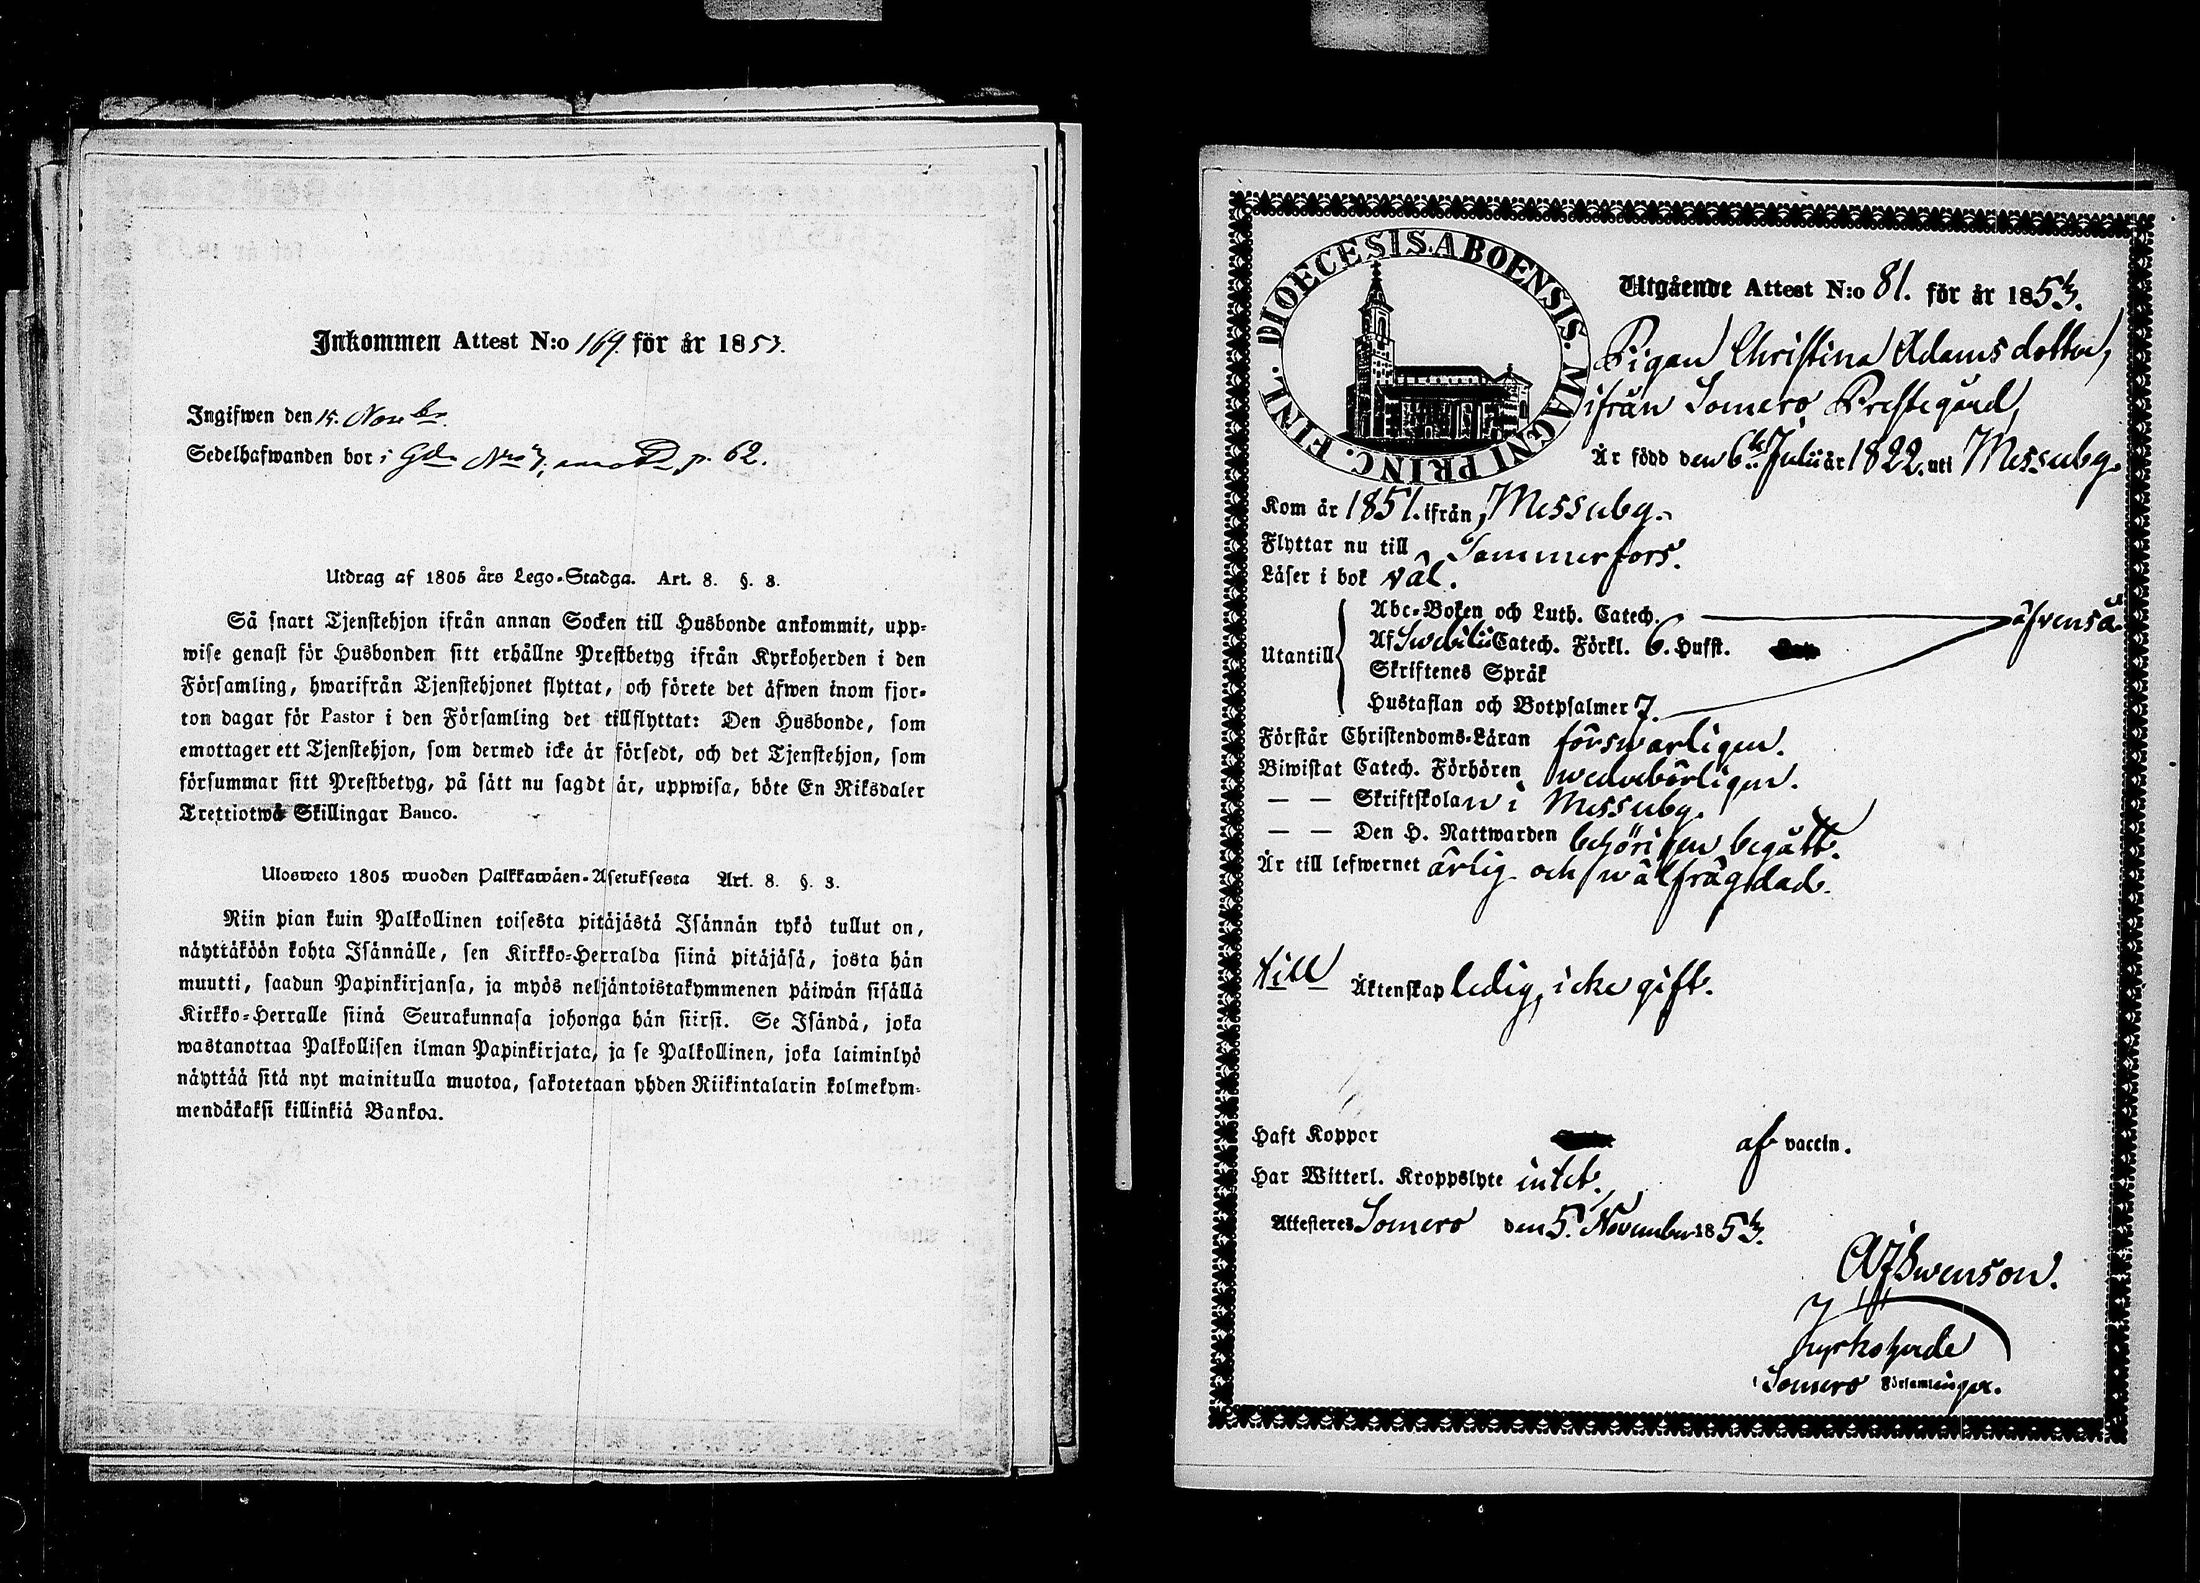 Inkommen Attest N:o 169. för år 1853.
Ingifwen den 15. Novbr.
Sedelhafwanden bor i Gdn Nro 7, p. 62.
Utdrag af 1805 års Lego-Stadga. Art. 8. §. 8.
Så snart Tjenstehjon ifrån annan Socken till Husbonde ankommit, upp-
wise genast för Husbonden sitt erhållne Prestbetyg ifrån Kyrkoherden i den
Församling, hwarifrån Tjenstehjonet flyttat, och förete det äfwen inom fjor-
ton dagar för Pastor i den Församling det tillflyttat: Den Husbonde, som
emottager ett Tjenstehjon, som dermed icke är försedt, och det Tjenstehjon, som
försummar sitt Prestbetyg, på sätt nu sagdt är, uppwisa, böte En Riksdaler
Trettiotwå Skillingar Banco.
Ulosweto 1805 wuoden Palkkawäen-Asetuksesta Art. 8. §. 8.
Niin pian kuin Palkollinen toisesta pitäjästä Isännän tykö tullut on,
näyttäköön kohta Isännälle, sen Kirkko-Herralda siinä pitäjäsä, josta hän
muutti, saadun Papinkirjansa, ja myös neljäntoistakymmenen päiwän sisällä
Kirkko-Herralle siinä Seurakunnasa johonga hän siirsi. Se Isändä, joka
wastanottaa Palkollisen ilman Papinkirjata, ja se Palkollinen, joka laiminlyö
näyttää sitä nyt mainitulla muotoa, sakotetaan yhden Riikintalarin kolmekym-
mendäkaksi killinkiä Bankoa.
DIOECESIS. ABOENSIS. MAGNI PRINC. FINL.
Utgående Attest N:o 81. för år 1853.
Pigan Christina Adamsdotter,
ifrån Somero Prestegård,
Är född den 6te Julii år 1822. uti Messuby.
Kom år 1851. ifrån Messuby.
Flyttar nu till Tammerfors.
Läser i bok väl.
Abc-Boken och Luth. Catech. äfvenså
Utantill Af Swebilii Catech. Förkl. 6. Hufst.
Skriftenes Språk
Hustaflan och Botpsalmer 7.
Förstår Christendoms-Läran förswarligen.
Biwistat Catech. Förhören wederbörligen.
— — Skriftskolan i Messuby.
— — Den H. Nattwarden behörigen begått.
Är till lefwernet ärlig och wälfrägdad.
till Äktenskap ledig, icke gift.
Haft Koppor af vaccin.
Har Witterl. Kroppslyte intet.
Attesteres Somero den 5. November 1853.
AJSwenson.
Kyrkoherde
i Somero Församlingar.